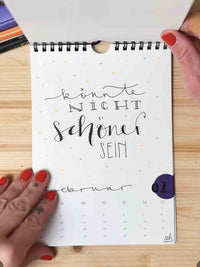 könnte
NICHT
schöner
SEIN
februar
02